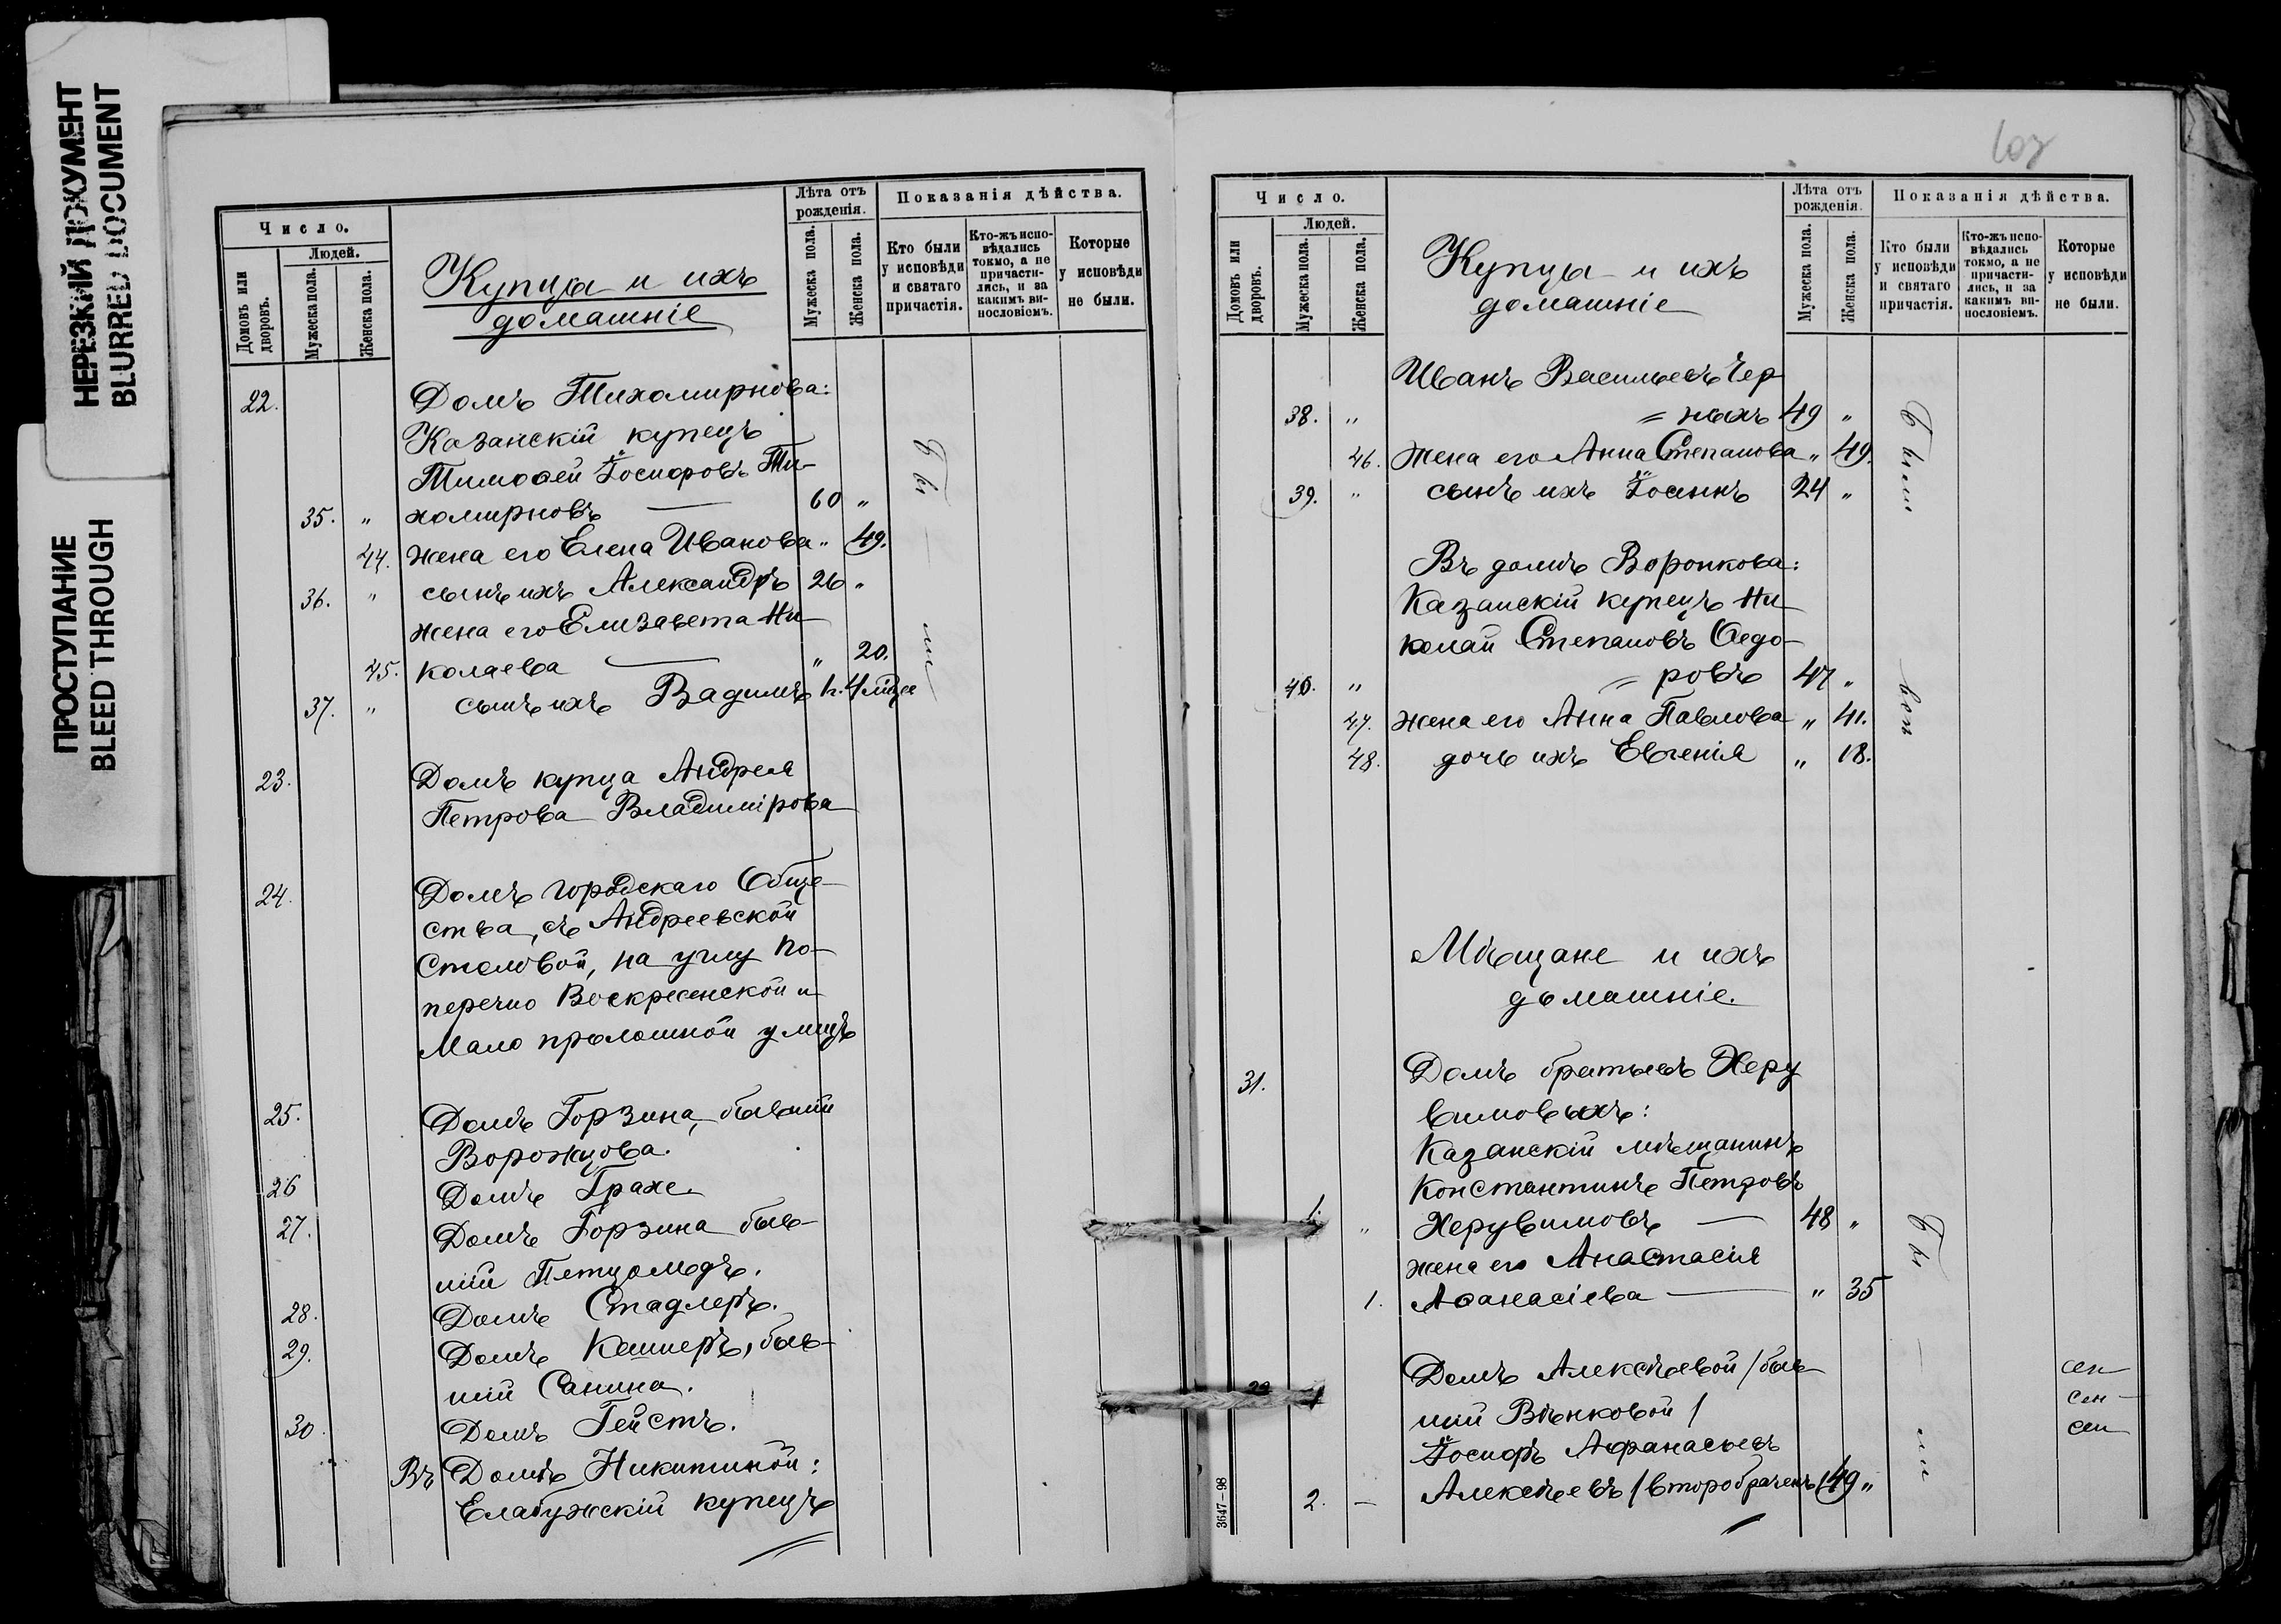 НЕРЕЗКИЙ ДОКУМЕНТ
BLURRED DOCUMENT
ПРОСТУПАНИЕ
BLEED THROUGH
Число.
Людей.
Домовъ или дворовъ.
Мужеска пола.
Женска пола.
Купцы и ихъ
домашніе
Лѣта отъ рожденія.
Мужеска пола.
Женска пола.
Показанія дѣйства.
Кто были у исповѣди и святаго причастія.
Кто-жъ исповѣдались токмо, а не причастились, и за какимъ винословіемъ.
Которые у исповѣди не были.
22. Домъ Тихомирнова:
Казанскій купецъ
Тимоѳей Іосифовъ Ти-
35. " хомирновъ — 60 "
44. жена его Елена Иванова " 49.
36. " сынъ ихъ Александръ 26 "
жена его Елизавета Ни-
45. колаева — " 20.
37. " сынъ ихъ Вадимъ
Бы — ли
23. Домъ купца Андрея
Петрова Владимірова
24. Домъ городскаго Обще-
ства, съ Андреевской
Столовой, на углу по-
перечно Воскресенской и
Мало проломной улицъ
25. Домъ Горзина, бывшій
Ворожцова.
26 Домъ Грахе.
27. Домъ Горзина быв-
шій Петцольдъ.
28. Домъ Стадлеръ.
29. Домъ Кешнеръ, быв-
шій Санина.
30. Домъ Гейстъ.
Въ Домѣ Никитиной:
Елабужскій купецъ
103
Число.
Людей.
Домовъ или дворовъ.
Мужеска пола.
Женска пола.
Купцы и ихъ
домашніе
Лѣта отъ рожденія.
Мужеска пола.
Женска пола.
Показанія дѣйства.
Кто были у исповѣди и святаго причастія.
Кто-жъ исповѣдались токмо, а не причастились, и за какимъ винословіемъ.
Которые у исповѣди не были.
Иванъ Васильевъ Чер
38. " = ныхъ 49 "
46. Жена его Анна Степанова " 49.
39. " сынъ ихъ 24 "
Были
Въ домѣ Воронкова:
Казанскій купецъ Ни-
колай Степановъ Ѳедо-
40. " = ровъ 47 "
47. жена его Анна Павлова " 41.
48. дочь ихъ Евгенія " 18.
Мѣщане и ихъ
домашніе.
31. Домъ братьевъ Херу
вимовыхъ:
Казанскій мѣщанинъ
Константинъ Петровъ
1. " Херувимовъ — 48 "
жена его Анастасія
1. Аѳанасіева — " 35
Бы — ли
Домъ Алексѣевой /быв
шій Вѣнковой/
Іосифъ Афанасьевъ
2. — Алексѣевъ /второбраченъ/ 49 "
3647—98